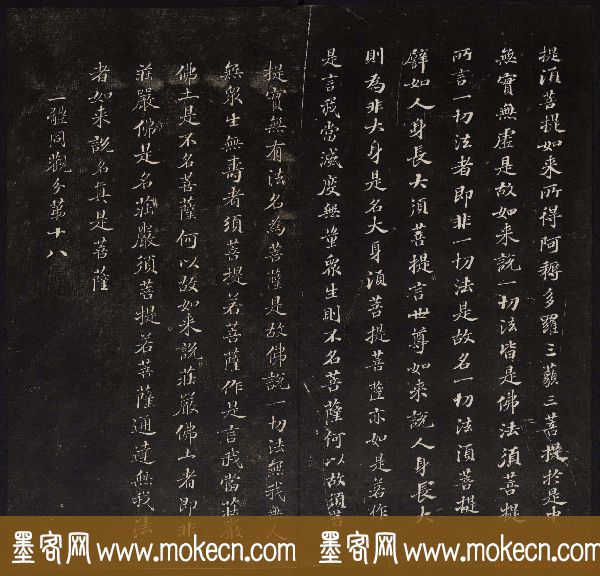 提須菩提如来所得阿耨多羅三藐三菩提於是中
無實無虛是故如来說一切法皆是佛法須菩提
所言一切法者即非一切法是故名一切法須菩提
譬如人身長大須菩提言世尊如来說人身長大
則為非大身是名大身須菩提菩薩亦如是若作
是言我當滅度無量眾生則不名菩薩何以故須菩
提實無有法名為菩薩是故佛說一切法無我無人
無眾生無壽者須菩提若菩薩作是言我當莊嚴
佛土是不名菩薩何以故如来說莊嚴佛土者即非
莊嚴佛是名莊嚴須菩提若菩薩通達無我法
者如来說名真是菩薩
一體同觀分第十八
墨客网 www.mokecn.com 墨客网 www.mokecn.com